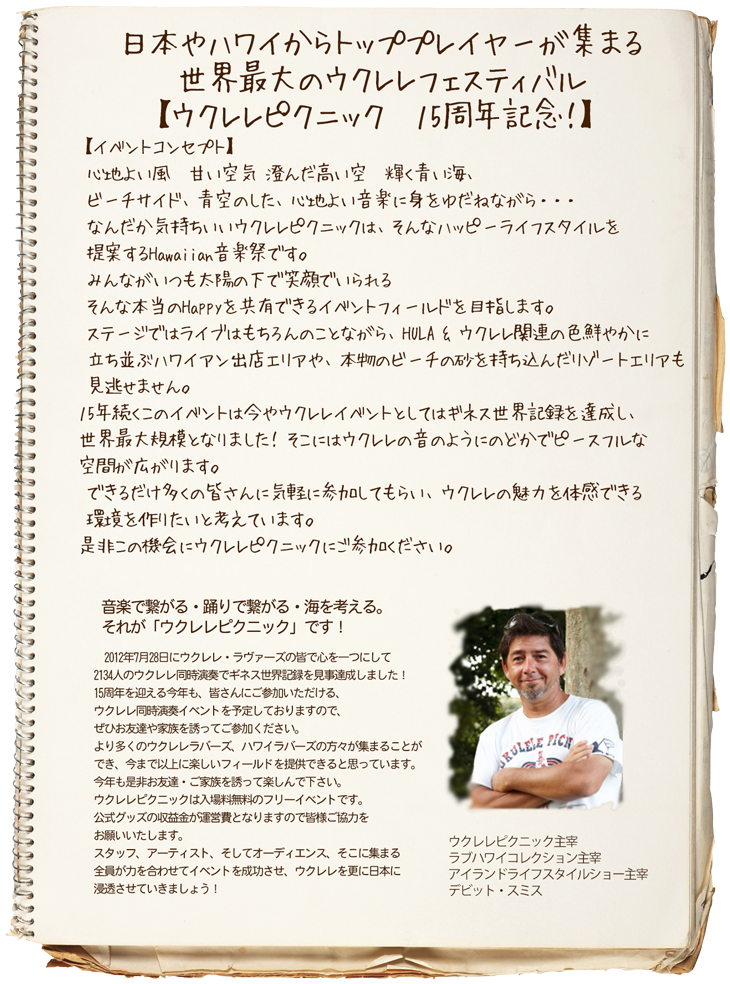 日本やハワイからトッププレイヤーが集まる
世界最大のウクレレフェスティバル
【ウクレレピクニック　15周年記念!】
【イベントコンセプト】
心地よい風　甘い空気 澄んだ高い空　輝く青い海、
ビーチサイド、青空のした、心地よい音楽に身をゆだねながら・・・
なんだか気持ちいいウクレレピクニックは、そんなハッピーライフスタイルを
提案するHawaiian音楽祭です。
みんながいつも太陽の下で笑顔でいられる
そんな本当のHappyを共有できるイベントフィールドを目指します。
ステージではライブはもちろんのことながら、HULA & ウクレレ関連の色鮮やかに
立ち並ぶハワイアン出店エリアや、本物のビーチの砂を持ち込んだリゾートエリアも
見逃せません。
15年続くこのイベントは今やウクレレイベントとしてはギネス世界記録を達成し、
世界最大規模となりました! そこにはウクレレの音のようにのどかでピースフルな
空間が広がります。
できるだけ多くの皆さんに気軽に参加してもらい、ウクレレの魅力を体感できる
環境を作りたいと考えています。
是非この機会にウクレレピクニックにご参加ください。
音楽で繋がる・踊りで繋がる・海を考える。
それが「ウクレレピクニック」です！
2012年7月28日にウクレレ・ラヴァーズの皆で心を一つにして
2134人のウクレレ同時演奏でギネス世界記録を見事達成しました！
15周年を迎える今年も、皆さんにご参加いただける、
ウクレレ同時演奏イベントを予定しておりますので、
ぜひお友達や家族を誘ってご参加ください。
より多くのウクレレラバーズ、ハワイラバーズの方々が集まることが
でき、今まで以上に楽しいフィールドを提供できると思っています。
今年も是非お友達・ご家族を誘って楽しんで下さい。
ウクレレピクニックは入場料無料のフリーイベントです。
公式グッズの収益金が運営費となりますので皆様ご協力を
お願いいたします。
スタッフ、アーティスト、そしてオーディエンス、そこに集まる
全員が力を合わせてイベントを成功させ、ウクレレを更に日本に
浸透させていきましょう！
UKULELE PICN
ウクレレピクニック主宰
ラブハワイコレクション主宰
アイランドライフスタイルショー主宰
デビット・スミス